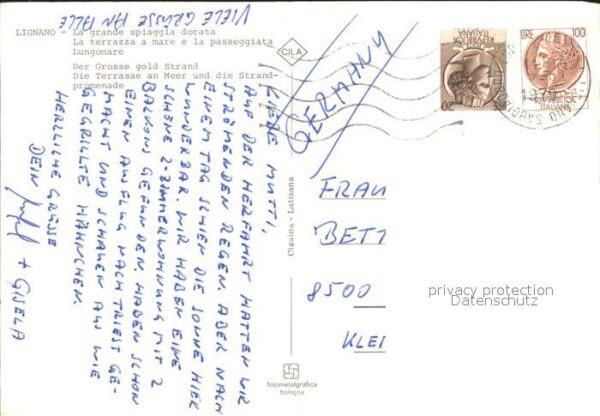 LIGNANO - La grande spiaggia dorata
La terrazza a mare e la passeggiata
Lungomare
Der Grosse gold Strand
Die Terrasse an Meer und die Strand-
promenade
CILA
VIELE GRÜSSE AN ALLE
LIEBE MUTTI,
AUF DER HERFAHRT HATTEN WIR
STRÖMENDEN REGEN. ABER NACH
EINEM TAG SCHIEN DIE SONNE HIER
WUNDERBAR. WIR HABEN EINE
SCHÖNE 2-ZIMMERWOHNUNG MIT 2
BALKONS GEFUNDEN. HABEN SCHON
EINEN AUSFLUG NACH TRIEST GE-
MACHT UND SCHAUEN AUS WIE
GEGRILLTE HÄHNCHEN.
HERZLICHE GRÜSSE
DEIN
+ GISELA
Cigaina - Latisana
fotometalgrafica
bologna
GERMANY
20
REPUBBLICA
ITALIANA
LIRE 100
REPUBBLICA
ITALIANA
1979
FRAU
BETT
8500
KLEI
privacy protection
Datenschutz